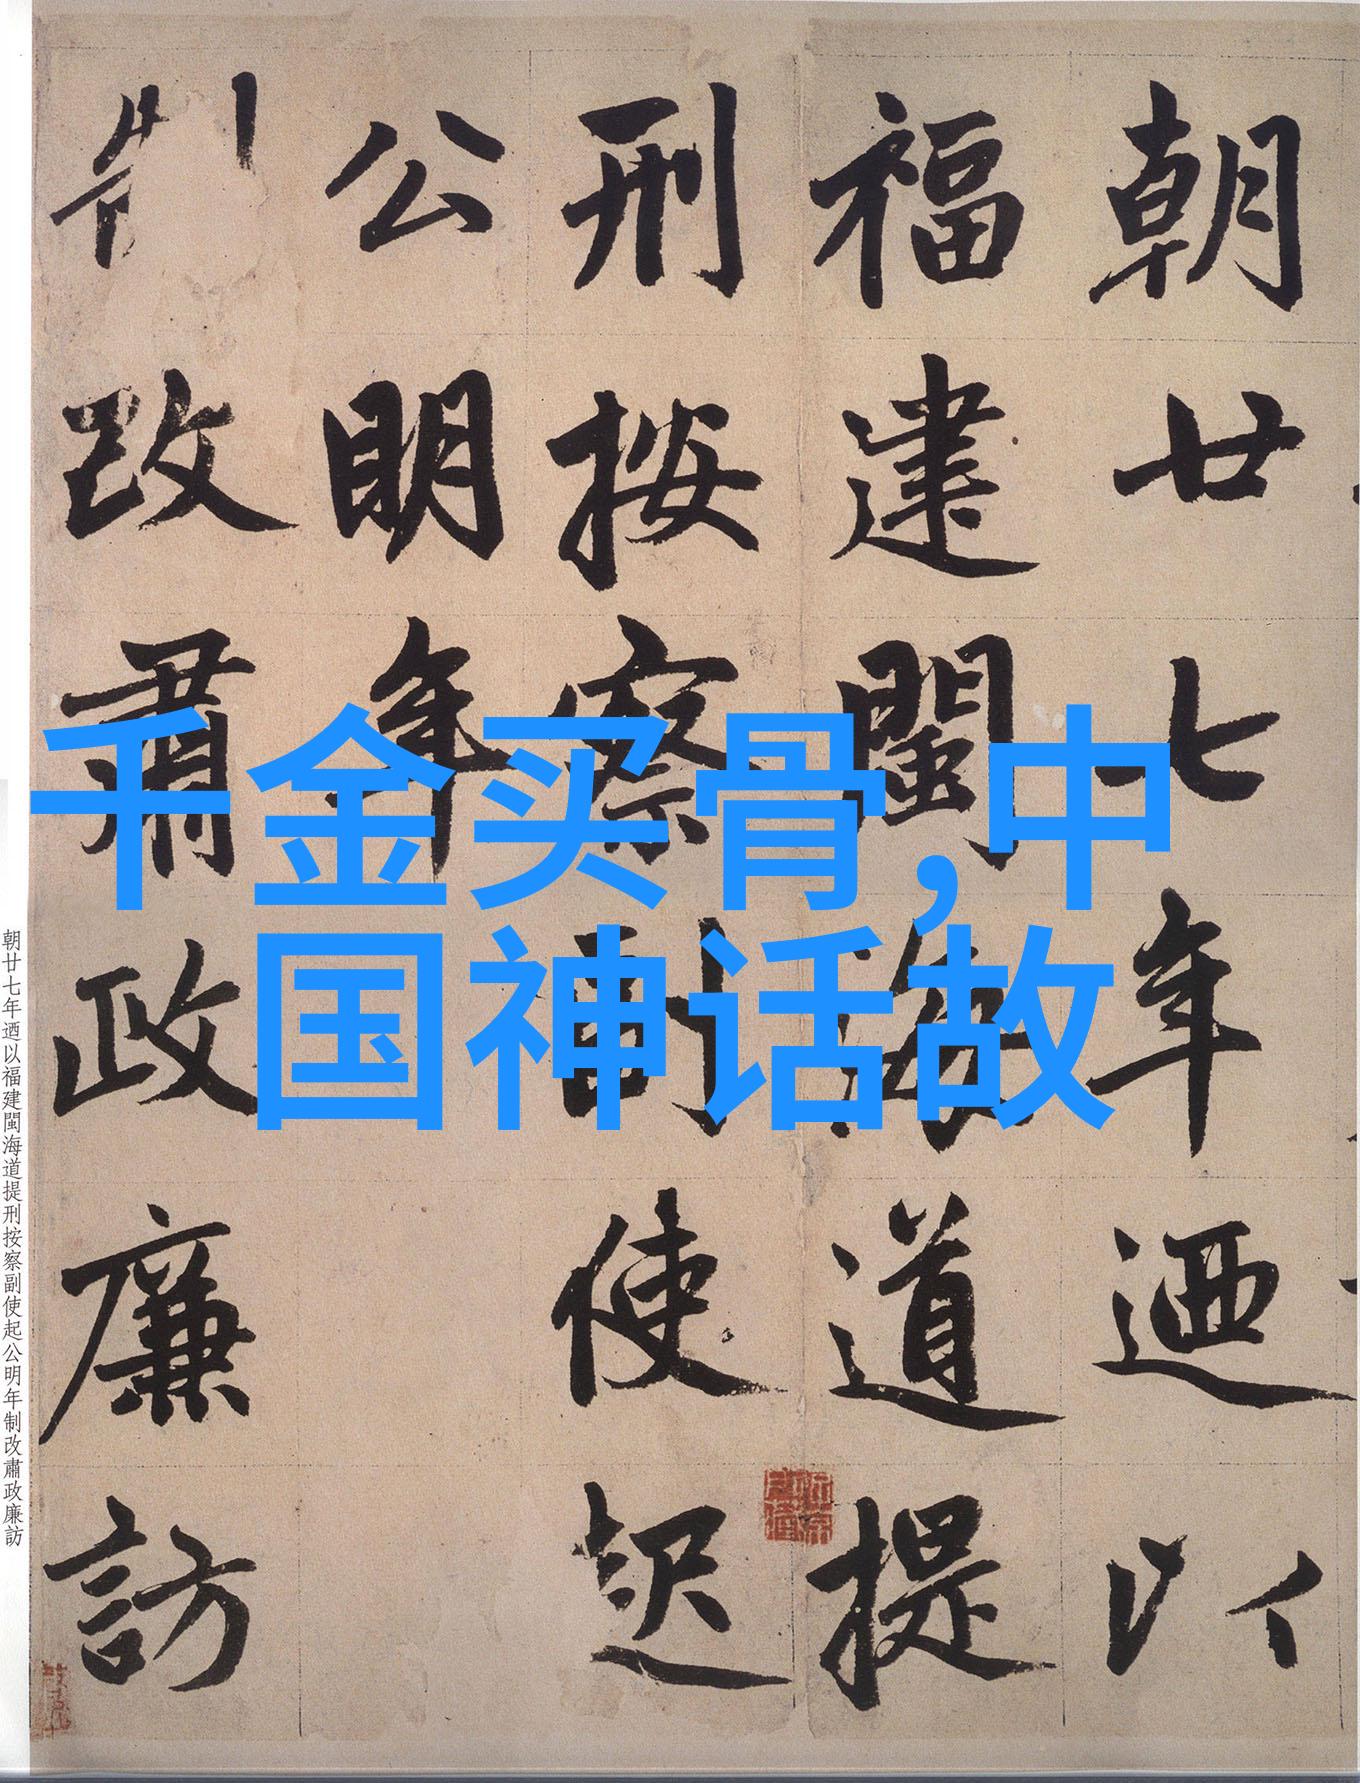 千金买骨,中
国神话故
朝廿七年迺以
福建閩海道提
刑按察副使起
公明年
制改肅政廉訪
朝廿七年迺以福建閩海道提刑按察副使起公明年制改肅政廉訪